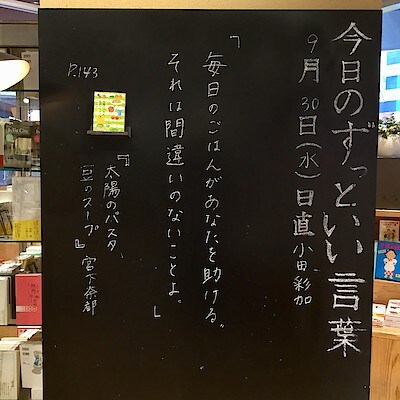 今日のずっといい言葉
9月30日(水)日直 小田彩加
「毎日のごはんがあなたを助ける。
それは間違いのないことよ。」
P.143
『太陽のパスタ、
豆のスープ』宮下奈都